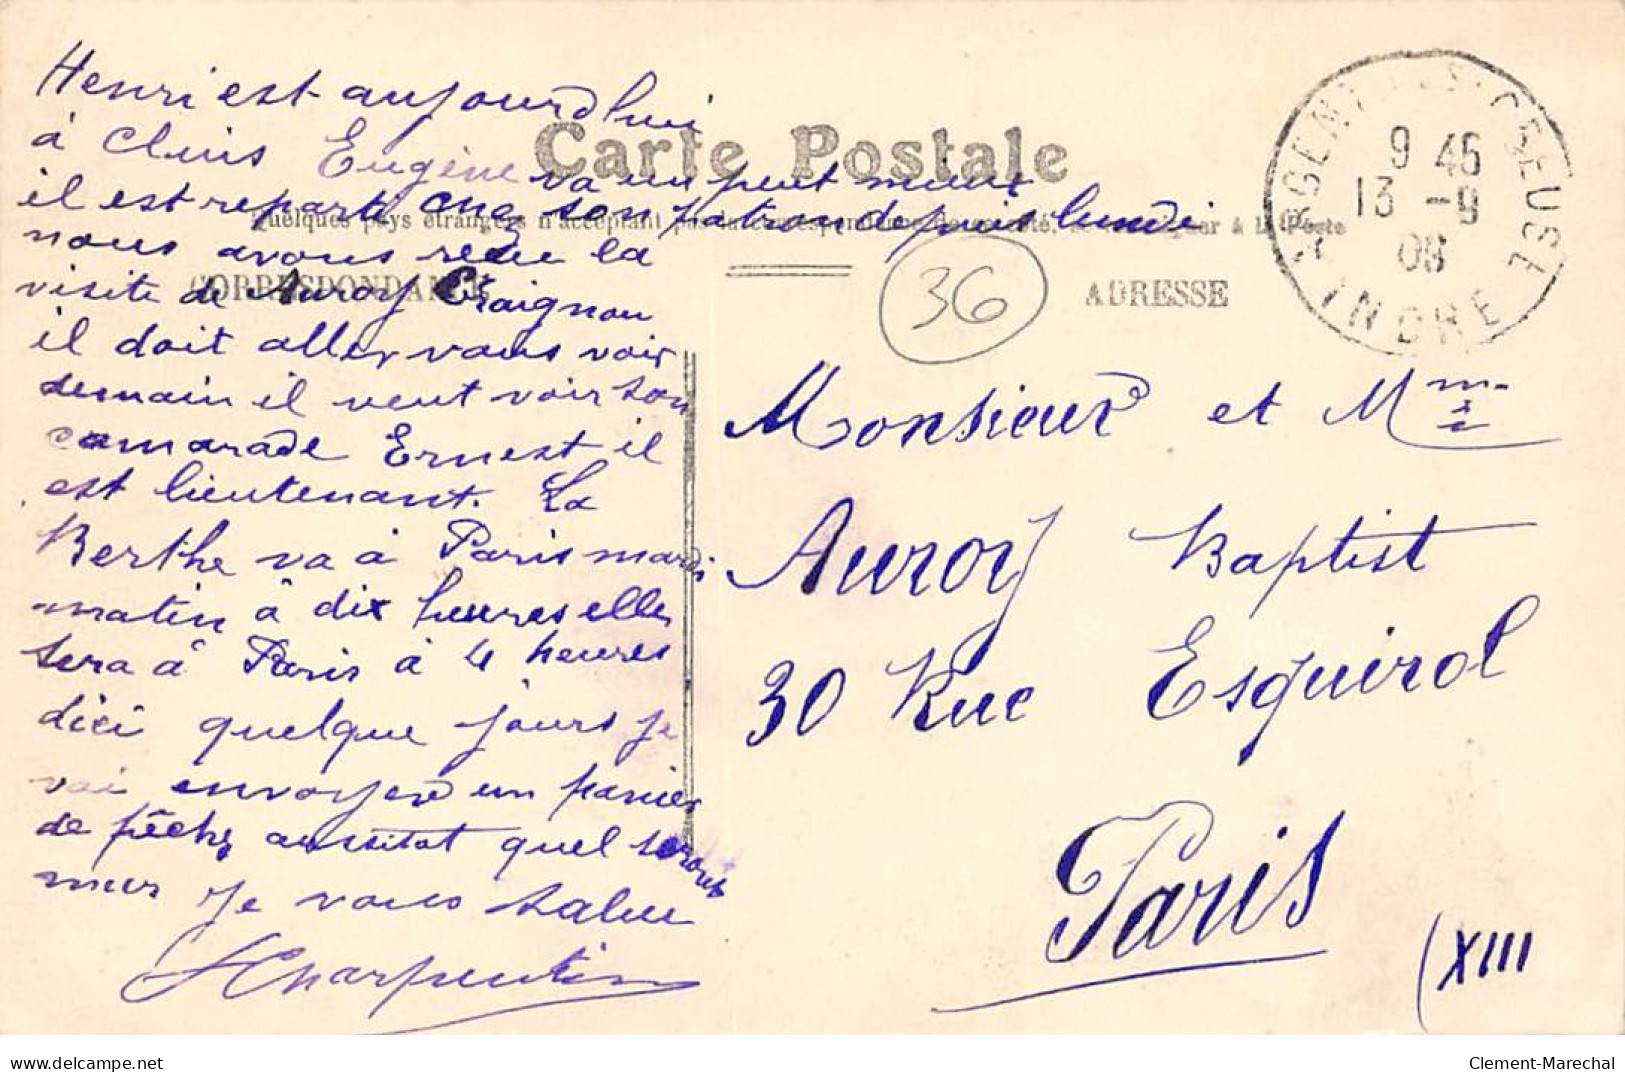 Henri est aujourdhui
à Cluis Eugène va un peut mieux
il est reparti chez son patron depuis lundi
nous avons reçu la
visite de Auroy Craignou
il doit aller vous voir
demain il veut voir son
camarade Ernest il
est lieutenant. La
Berthe va à Paris mardi
matin à dix heures elle
sera à Paris à 4 heures
dici quelque jours je
vai envoyere un panier
de pêche aussitot quel seront
mur je vous salue
Charpentier
Carte Postale
Quelques pays étrangers n'acceptent pas la correspondance de ce côté, à la Poste
CORRESPONDANCE
ADRESSE
36
ARGENTON-S-CREUSE
9 45
13 -9
08
INDRE
Monsieur et Mme
Auroy Baptist
30 Rue Esquirol
Paris
(XIII
delcampe.net
Clement-Marechal